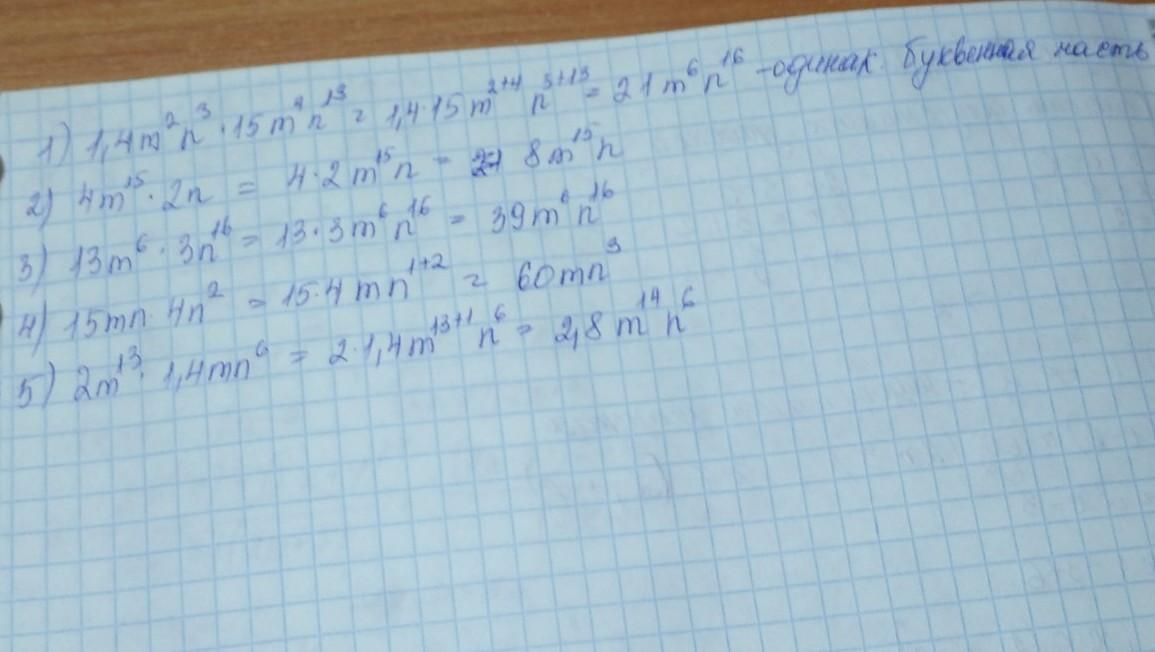 1) 1,4m²n³ · 15m⁴n¹³ = 1,4·15m²⁺⁴ n³⁺¹³ = 21m⁶n¹⁶ - одинак. буквенная часть
2) 4m¹⁵ · 2n = 4·2m¹⁵n = 8m¹⁵n
3) 13m⁶ · 3n¹⁶ = 13·3m⁶n¹⁶ = 39m⁶n¹⁶
4) 15mn · 4n² = 15·4mn¹⁺² = 60mn³
5) 2m¹³ · 1,4mn⁶ = 2·1,4m¹³⁺¹n⁶ = 2,8m¹⁴n⁶